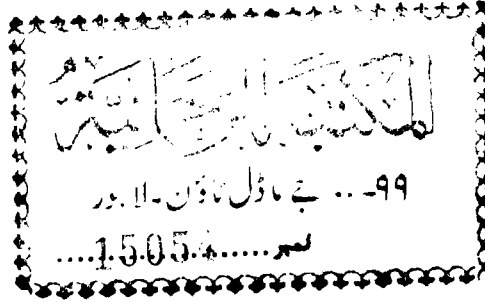 المکتبۃ الرحمانیۃ
۹۹۔۔۔ جے ماڈل ٹاؤن۔ لاہور
نمبر.....15054.....